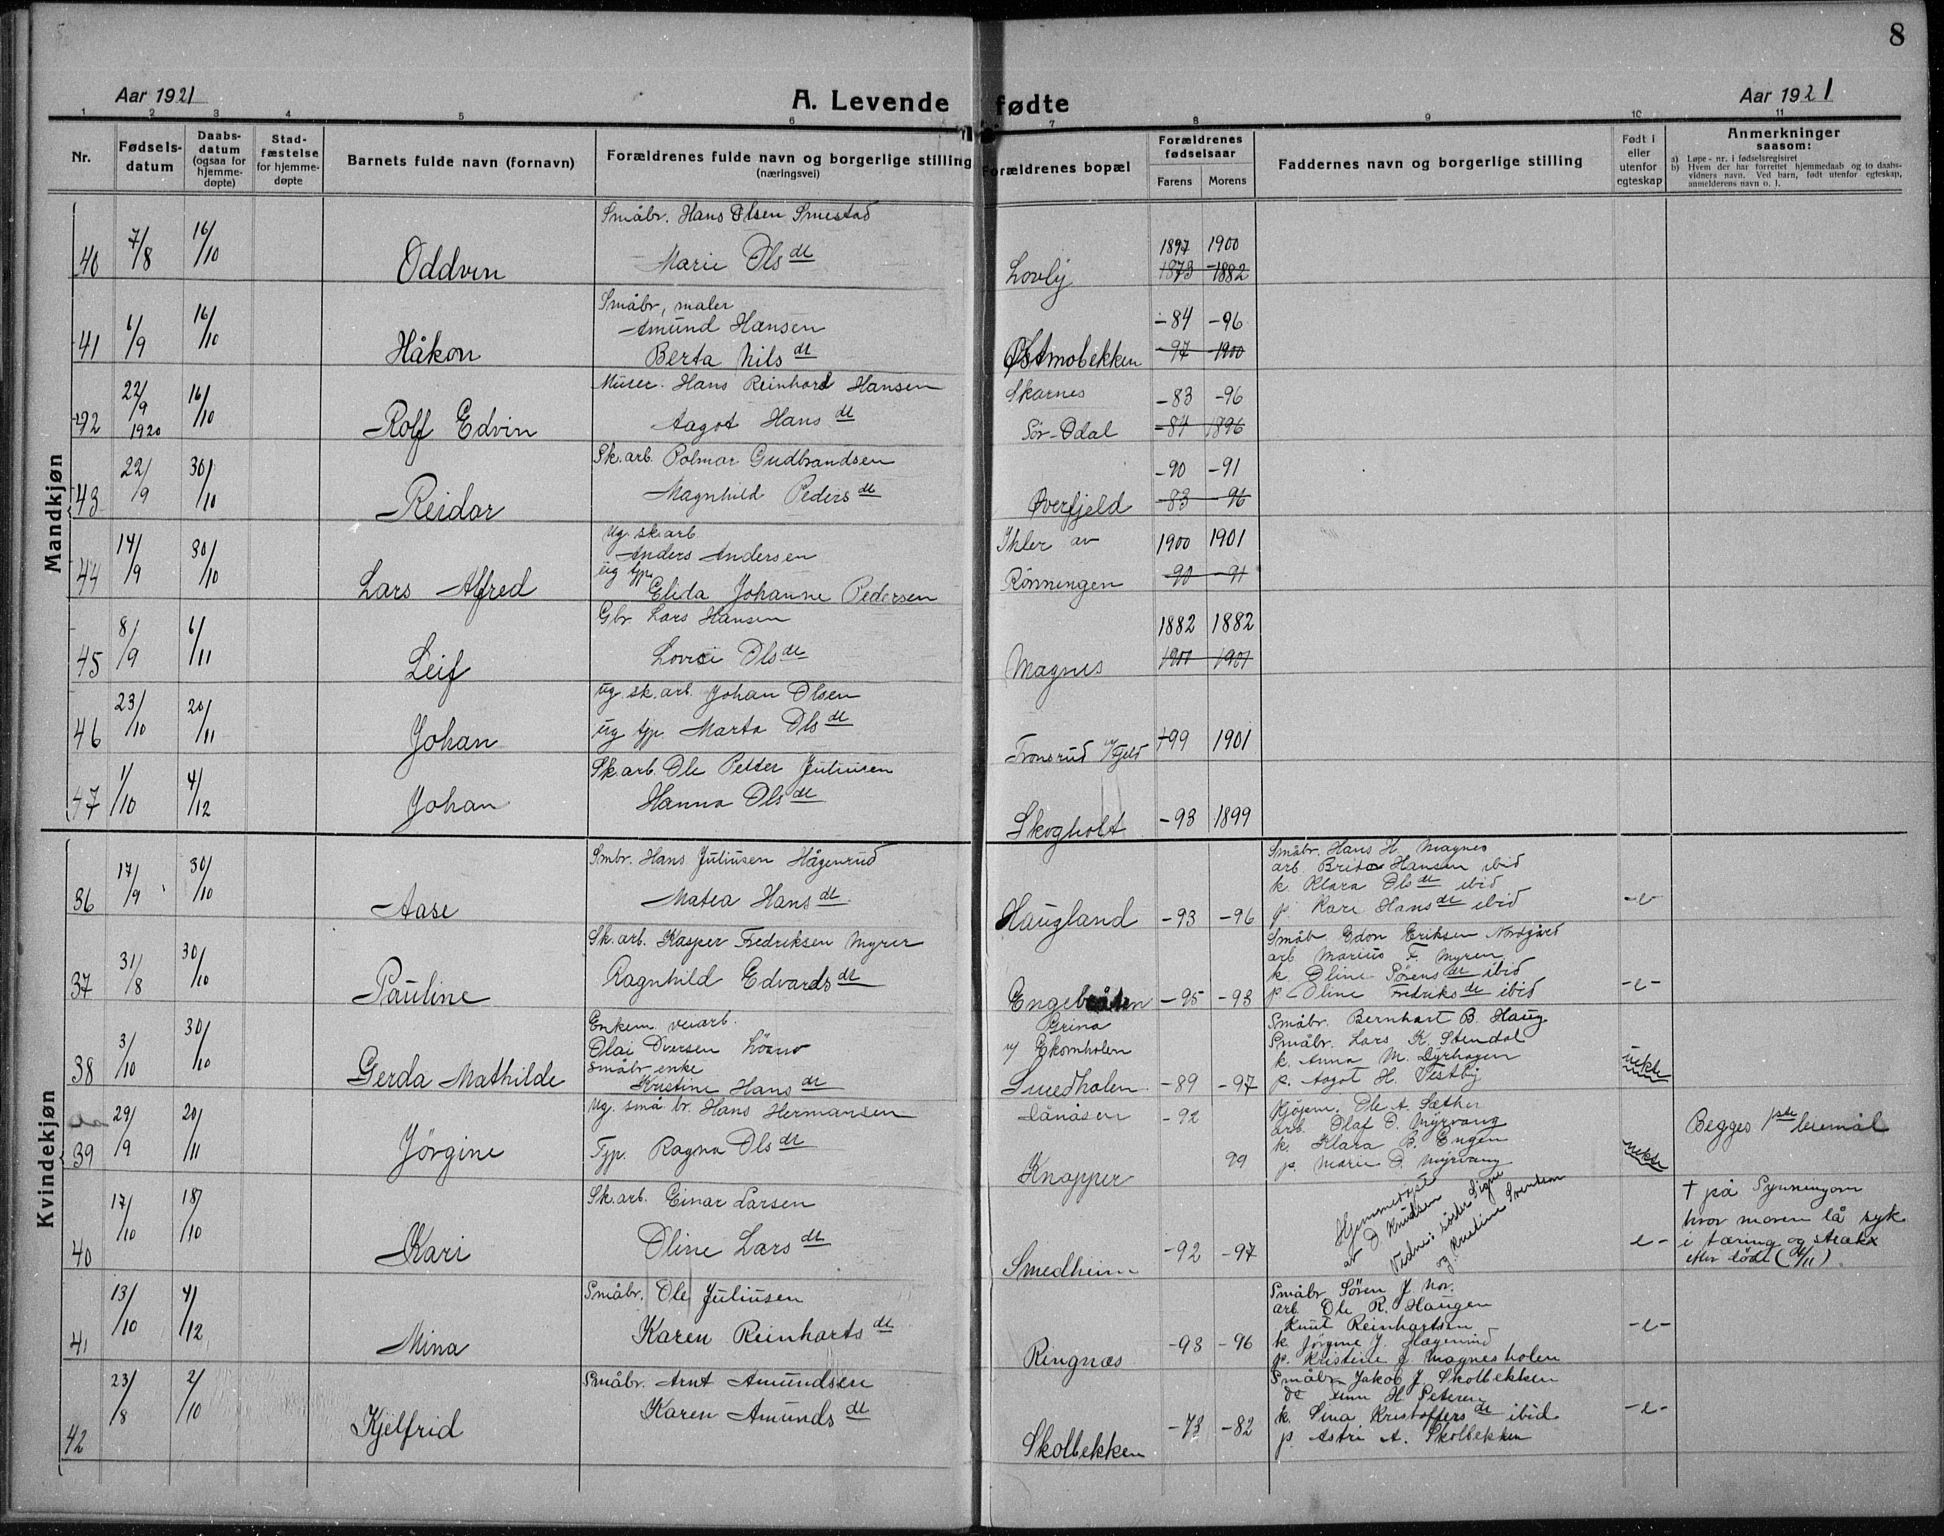 8
Aar 1921
A. Levende fødte
Aar 1921
1 2 3 4 5 6 7 8 9 10 11
Nr.
Fødselsdatum
Daabsdatum (ogsaa for hjemmedøpte)
Stadfæstelse for hjemmedøpte
Barnets fulde navn (fornavn)
Forældrenes fulde navn og borgerlige stilling (næringsvei)
Forældrenes bopæl
Forældrenes fødselsaar
Farens Morens
Faddernes navn og borgerlige stilling
Født i eller utenfor egteskap
Anmerkninger saasom:
a) Løpe-nr. i fødselsregistret
b) Hvem der har forrettet hjemmedaab og to daabsvidners navn. Ved barn, født utenfor egteskap, anmelderens navn o. l.
Mandkjøn
40 7/8 16/10 Oddvin
Småbr. Hans Olsen Smestad
Marie Olsdt
Lovly
1897 1900
1873 -1882
41 6/9 16/10 Håkon
Småbr, maler
Amund Hansen
Berta Nilsdt
Østmobekken
-84 -96
-97 -1900
42 22/9 1920 16/10 Rolf Edvin
Murer. Hans Reinhard Hansen
Aagot Hansdt
Skarnes
Sør-Odal
-83 -96
-87 1896
43 22/9 30/10 Reidar
Sk.arb. Polmar Gudbrandsen
Magnhild Pedersdt
Øverfjeld
-90 -91
-83 -96
44 14/9 30/10 Lars Alfred
Ug. sk.arb
Anders Andersen
ug tjp
Elida Johanne Pedersen
Ihler av
Rønningen
1900 1901
-90 -91
45 8/9 6/11 Leif
Gbr Lars Hansen
Lovise Olsdt
Magnes
1882 1882
1900 1901
46 23/10 20/11 Johan
ug. sk.arb. Johan Olsen
ug tjp. Marta Olsdt
Tronsrud
+99 1901
47 1/10 4/12 Johan
Sk.arb. Ole Petter Juliusen
Hanna Olsdt
Skogholt
-93 1899
Kvindekjøn
36 17/9 30/10 Aase
Smbr. Hans Juliusen Hågenrud
Matea Hansdt
Haugland
-93 -96
Småbr. Hans H. Magnes
arb Brede Hansen ibid
k. Klara Olsdt ibid
p. Kare Hansdt ibid
-e-
37 31/8 30/10 Pauline
Sk.arb. Kasper Fredriksen Myrer
Ragnhild Edvardsdt
Engebråten
-95 -93
Småb. Edon Eriksen Nordgård
arb Marius F. Myren
k. Oline Sørensdt ibid
p Oline Fredriksdt ibid
-e-
38 3/10 30/10 Gerda Mathilde
Enkem. veiarb.
Olai Iversen
Småbr enke
Kristine Hansdt
Grina
v/ Ekornholen
Smedholen
-89 -97
Småbr. Bernhart B. Haug
Småbr. Lars K. Stendal
k. Anna M. Dyrhagen
p. Aagot H. Vestby
uekte
39 29/9 20/11 Jörgine
Ug. små br. Hans Hermansen
Tjp. Ragna Olsdt
Lånåsen
Knapper
-92
99
Kjøpm. Ole A. Sæther
arb. Olaf O. Myrvang
k. Klara B. Engen
p. Marie O. Myrvang
uekte
Begges 1ste leiermål
40 17/10 18/10 Kari
Sk.arb. Einar Larsen
Oline Larsdt
Smedheim
-92 -97
Hjemmedøpt
av O Knudsen
Vidneis söster Signe
og Kristine Svendsen
e -
† på
hvor moren lå syk
i tæring og straks
efter döde
41 13/10 4/12 Mina
Småbr. Ole Juliusen
Karen Reinhartsdt
Ringnæs
-93 -96
Småbr Sören J Mor.
arb Ole R. Haugen
Knut Reinhartsen
k. Jörgine J. Hagenrud
p. Kristine J Magnesholen
-e-
42 23/8 2/10 Kjelfrid
Småbr. Arnt Amundsen
Karen Amundsdt
Skolbekken
-73 -82
Småbr Jakob J. Skolbekken
H Peteren
k. Lina Kristoffersdt ibid
p. Astri A. Skolbekken
-e-